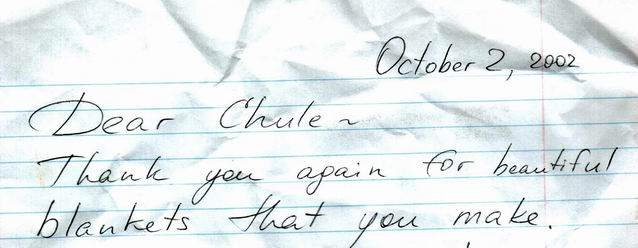 October 2, 2002
Dear Chule ~
Thank you again for beautiful
blankets that you make.